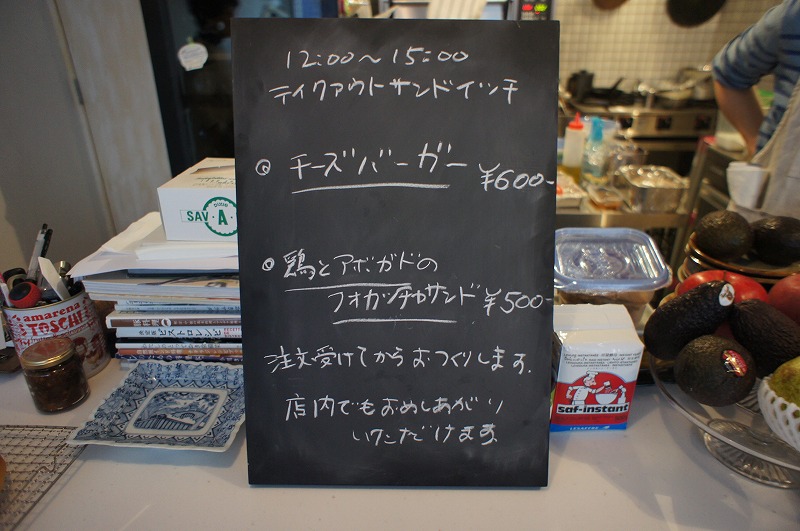 12:00〜15:00
テイクアウトサンドイッチ
◎ チーズバーガー ¥600-
◎ 鶏とアボガドの
フォカッチャサンド ¥500-
注文受けてからおつくりします.
店内でもおめしあがり
いただけます
DIXIE
SAV·A·
amarena
TOSCHI
saf-instant
LESAFFRE